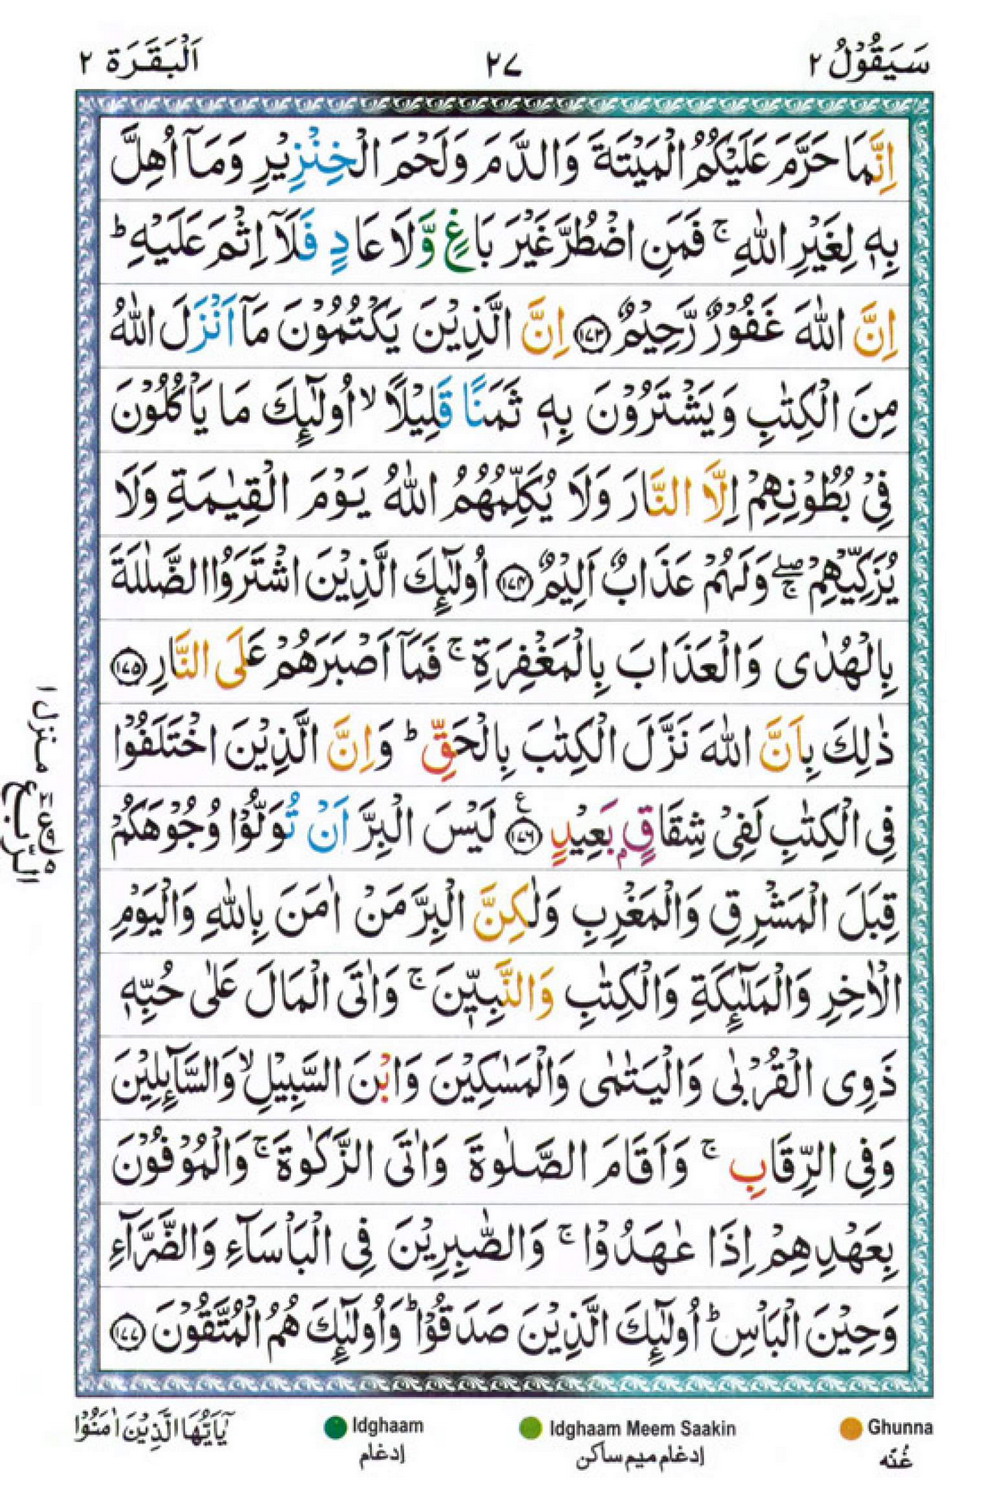 سَيَقُوْلُ ٢
٢٧
اَلْبَقَرَة ٢
اِنَّمَا حَرَّمَ عَلَيْكُمُ الْمَيْتَةَ وَالدَّمَ وَلَحْمَ الْخِنْزِيْرِ وَمَاۤ اُهِلَّ
بِهٖ لِغَيْرِ اللّٰهِ ۚ فَمَنِ اضْطُرَّ غَيْرَ بَاغٍ وَّلَا عَادٍ فَلَاۤ اِثْمَ عَلَيْهِ ؕ
اِنَّ اللّٰهَ غَفُوْرٌ رَّحِيْمٌ ﴿١٧٣﴾ اِنَّ الَّذِيْنَ يَكْتُمُوْنَ مَاۤ اَنْزَلَ اللّٰهُ
مِنَ الْكِتٰبِ وَيَشْتَرُوْنَ بِهٖ ثَمَنًا قَلِيْلًا ۙ اُولٰٓئِكَ مَا يَاْكُلُوْنَ
فِيْ بُطُوْنِهِمْ اِلَّا النَّارَ وَلَا يُكَلِّمُهُمُ اللّٰهُ يَوْمَ الْقِيٰمَةِ وَلَا
يُزَكِّيْهِمْ ۖۚ وَلَهُمْ عَذَابٌ اَلِيْمٌ ﴿١٧٤﴾ اُولٰٓئِكَ الَّذِيْنَ اشْتَرَوُا الضَّلٰلَةَ
بِالْهُدٰى وَالْعَذَابَ بِالْمَغْفِرَةِ ۚ فَمَاۤ اَصْبَرَهُمْ عَلَى النَّارِ ﴿١٧٥﴾
ذٰلِكَ بِاَنَّ اللّٰهَ نَزَّلَ الْكِتٰبَ بِالْحَقِّ ؕ وَاِنَّ الَّذِيْنَ اخْتَلَفُوْا
فِي الْكِتٰبِ لَفِيْ شِقَاقٍۭ بَعِيْدٍ ﴿١٧٦﴾ ع لَيْسَ الْبِرَّ اَنْ تُوَلُّوْا وُجُوْهَكُمْ
قِبَلَ الْمَشْرِقِ وَالْمَغْرِبِ وَلٰكِنَّ الْبِرَّ مَنْ اٰمَنَ بِاللّٰهِ وَالْيَوْمِ
الْاٰخِرِ وَالْمَلٰٓئِكَةِ وَالْكِتٰبِ وَالنَّبِيّٖنَ ۚ وَاٰتَى الْمَالَ عَلٰى حُبِّهٖ
ذَوِى الْقُرْبٰى وَالْيَتٰمٰى وَالْمَسٰكِيْنَ وَابْنَ السَّبِيْلِ ۙ وَالسَّآئِلِيْنَ
وَفِى الرِّقَابِ ۚ وَاَقَامَ الصَّلٰوةَ وَاٰتَى الزَّكٰوةَ ۚ وَالْمُوْفُوْنَ
بِعَهْدِهِمْ اِذَا عٰهَدُوْا ۚ وَالصّٰبِرِيْنَ فِى الْبَاْسَآءِ وَالضَّرَّآءِ
وَحِيْنَ الْبَاْسِ ؕ اُولٰٓئِكَ الَّذِيْنَ صَدَقُوْا ؕ وَاُولٰٓئِكَ هُمُ الْمُتَّقُوْنَ ﴿١٧٧﴾
منزل ١
الرُّبُع
يٰۤاَيُّهَا الَّذِيْنَ اٰمَنُوْا
Idghaam
إدغام
Idghaam Meem Saakin
إدغام ميم ساكن
Ghunna
غُنّه